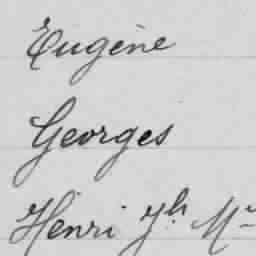 Eugène
Georges
Henri Jh